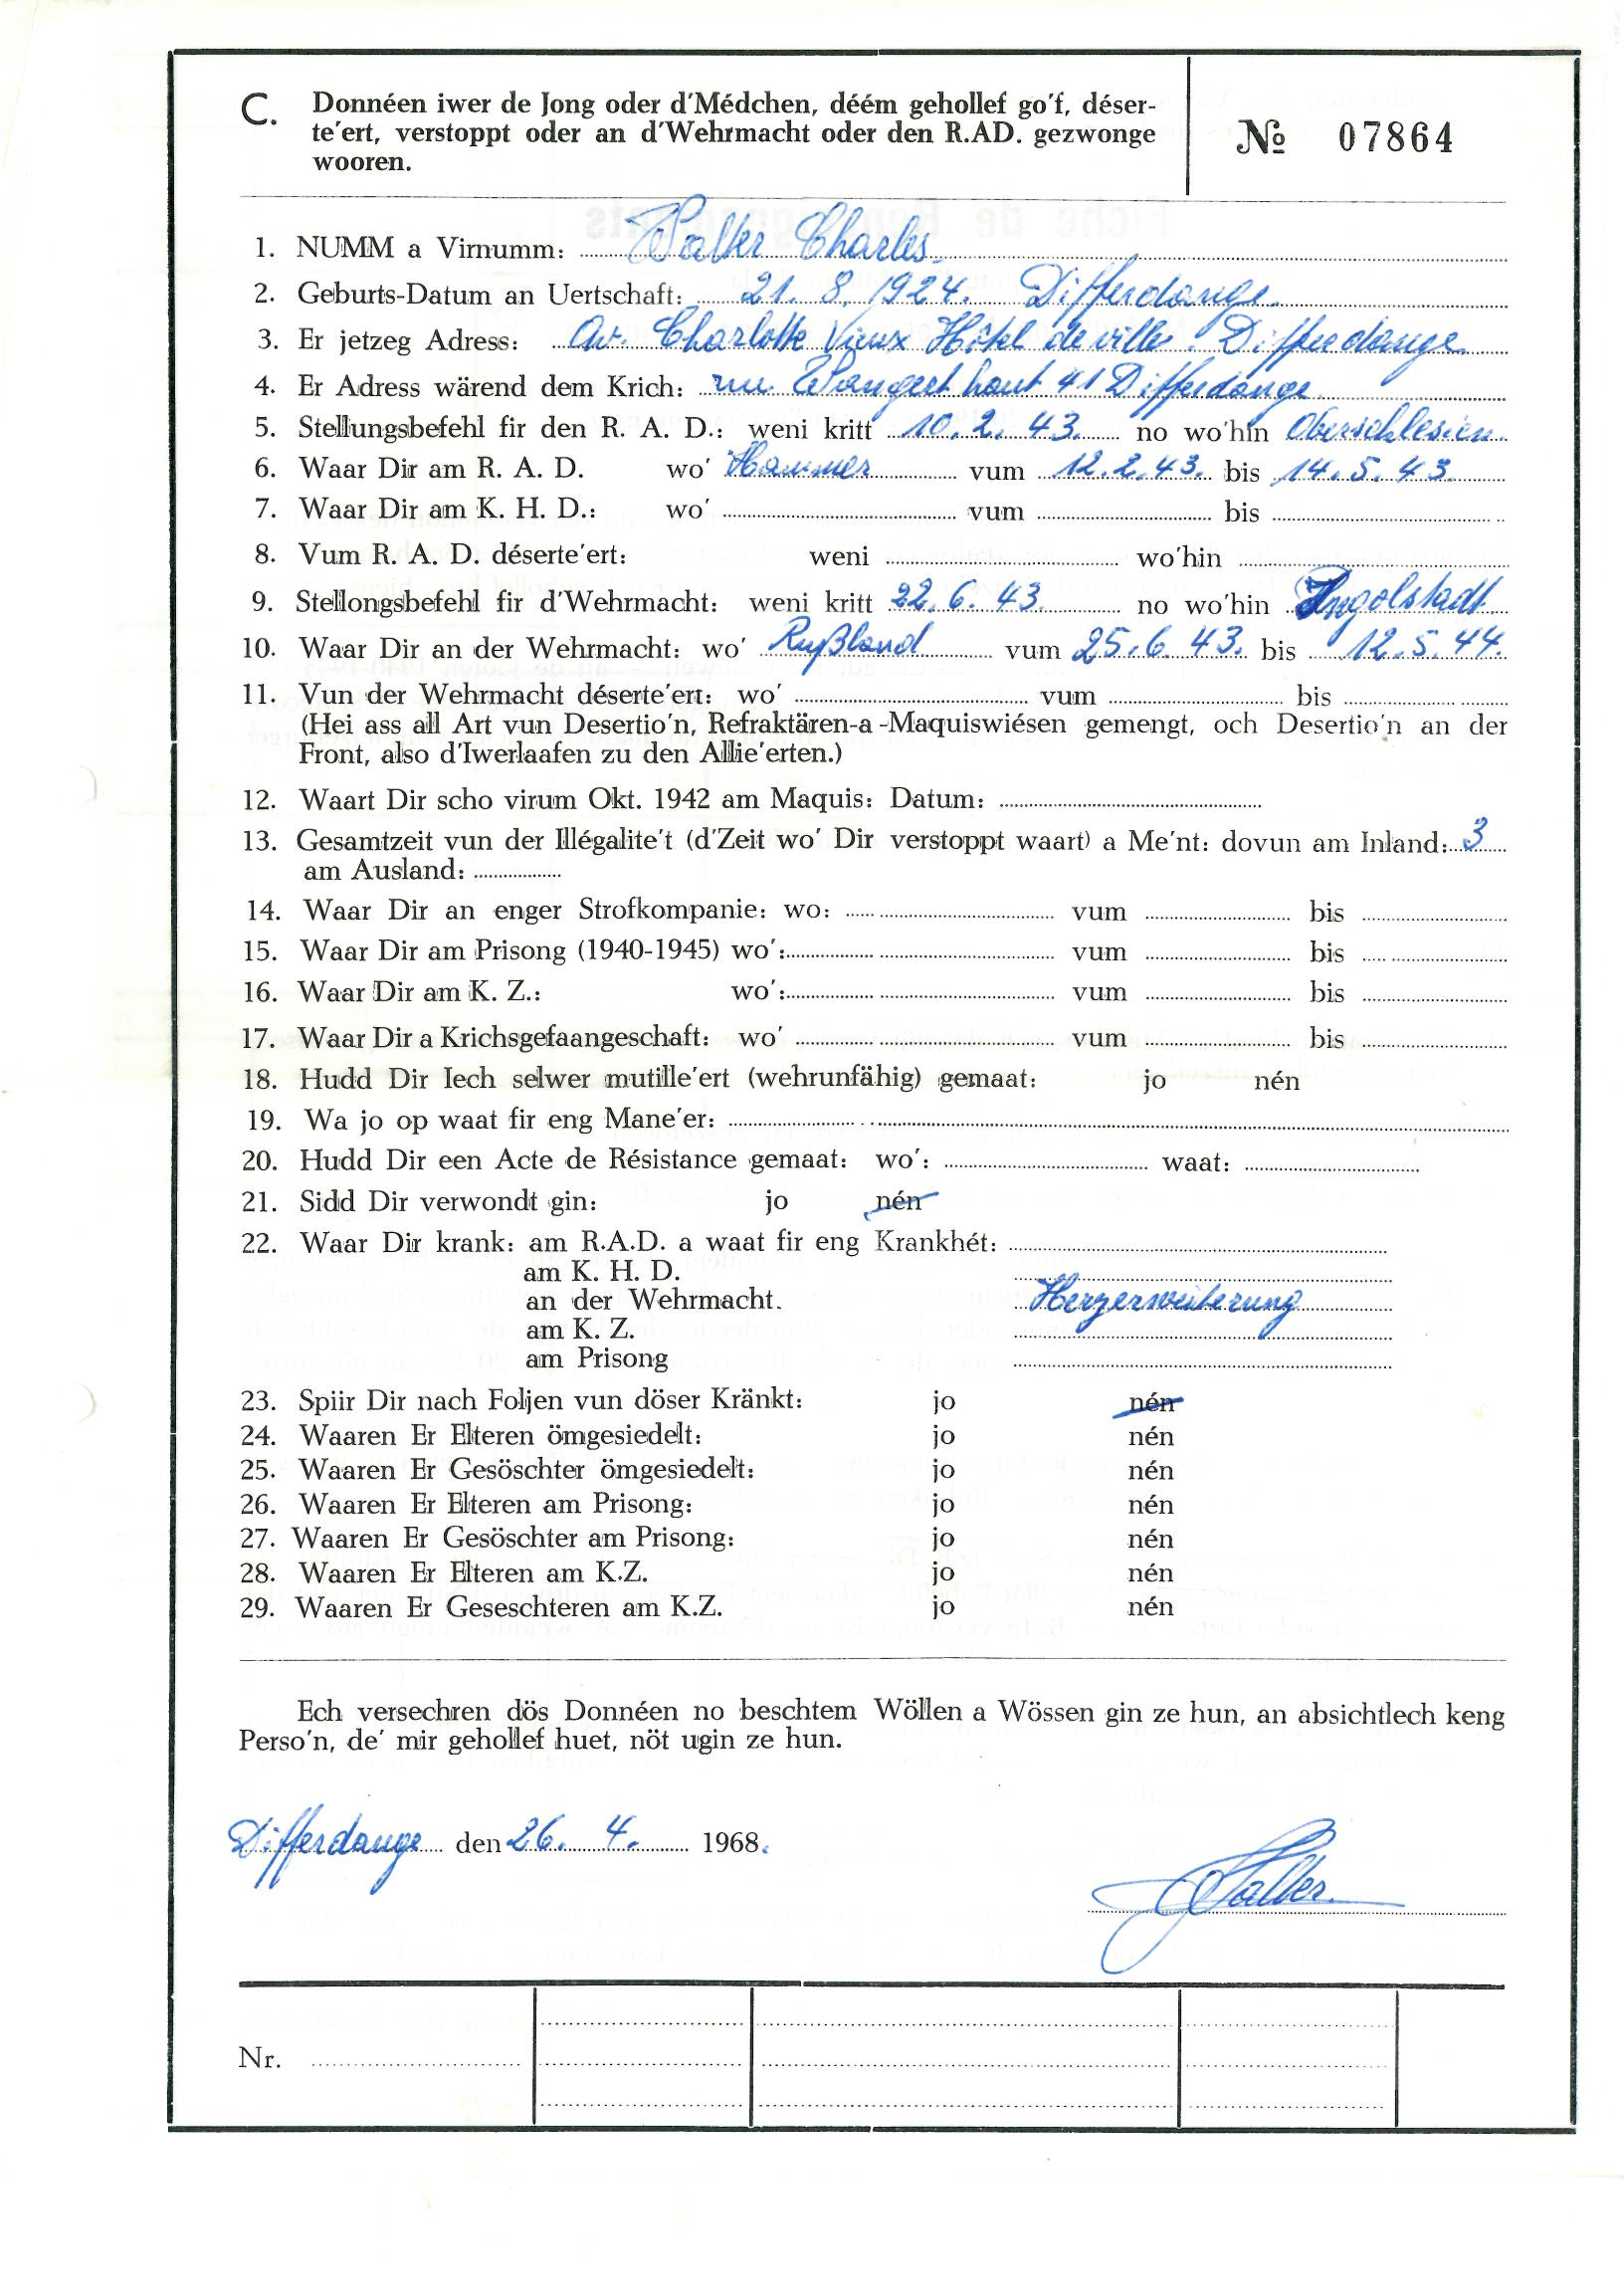 C. Donnéen iwer de Jong oder d'Médchen, déém gehollef go'f, déser-
te'ert, verstoppt oder an d'Wehrmacht oder den R.AD. gezwonge
wooren.
№ 07864
1. NUMM a Virnumm: Walter Charles
2. Geburts-Datum an Uertschaft: 21. 8. 1924. Differdange.
3. Er jetzeg Adress: Av. Charlotte Vieux Hôtel de ville. Differdange
4. Er Adress wärend dem Krich: rue Wangert haut 41 Differdange.
5. Stellungsbefehl fir den R. A. D.: weni kritt 10. 2. 43. no wo'hin Oberschlesien.
6. Waar Dir am R. A. D. wo' Hammer vum 12. 2. 43. bis 14. 5. 43.
7. Waar Dir am K. H. D.: wo' vum bis
8. Vum R. A. D. déserte'ert: weni wo'hin
9. Stellongsbefehl fir d'Wehrmacht: weni kritt 22. 6. 43. no wo'hin Ingolstadt
10. Waar Dir an der Wehrmacht: wo' Rußland vum 25. 6. 43. bis 12. 5. 44.
11. Vun der Wehrmacht déserte'ert: wo' vum bis
(Hei ass all Art vun Desertio'n, Refraktären-a-Maquiswiésen gemengt, och Desertio'n an der
Front, also d'Iwerlaafen zu den Allie'erten.)
12. Waart Dir scho virum Okt. 1942 am Maquis: Datum:
13. Gesamtzeit vun der Illégalite't (d'Zeit wo' Dir verstoppt waart) a Me'nt: dovun am Inland: 3
am Ausland:
14. Waar Dir an enger Strofkompanie: wo: vum bis
15. Waar Dir am Prisong (1940-1945) wo': vum bis
16. Waar Dir am K. Z.: wo': vum bis
17. Waar Dir a Krichsgefaangeschaft: wo' vum bis
18. Hudd Dir Iech selwer mutille'ert (wehrunfähig) gemaat: jo nén
19. Wa jo op waat fir eng Mane'er:
20. Hudd Dir een Acte de Résistance gemaat: wo': waat:
21. Sidd Dir verwondt gin: jo nén
22. Waar Dir krank: am R.A.D. a waat fir eng Krankhét:
am K. H. D.
an der Wehrmacht. Herzerweiterung
am K. Z.
am Prisong
23. Spiir Dir nach Foljen vun döser Kränkt: jo nén
24. Waaren Er Elteren ömgesiedelt: jo nén
25. Waaren Er Gesöschter ömgesiedelt: jo nén
26. Waaren Er Elteren am Prisong: jo nén
27. Waaren Er Gesöschter am Prisong: jo nén
28. Waaren Er Elteren am K.Z. jo nén
29. Waaren Er Geseschteren am K.Z. jo nén
Ech versechren dös Donnéen no beschtem Wöllen a Wössen gin ze hun, an absichtlech keng
Perso'n, de' mir gehollef huet, nöt ugin ze hun.
Differdange den 26. 4. 1968.
Walter.
Nr.